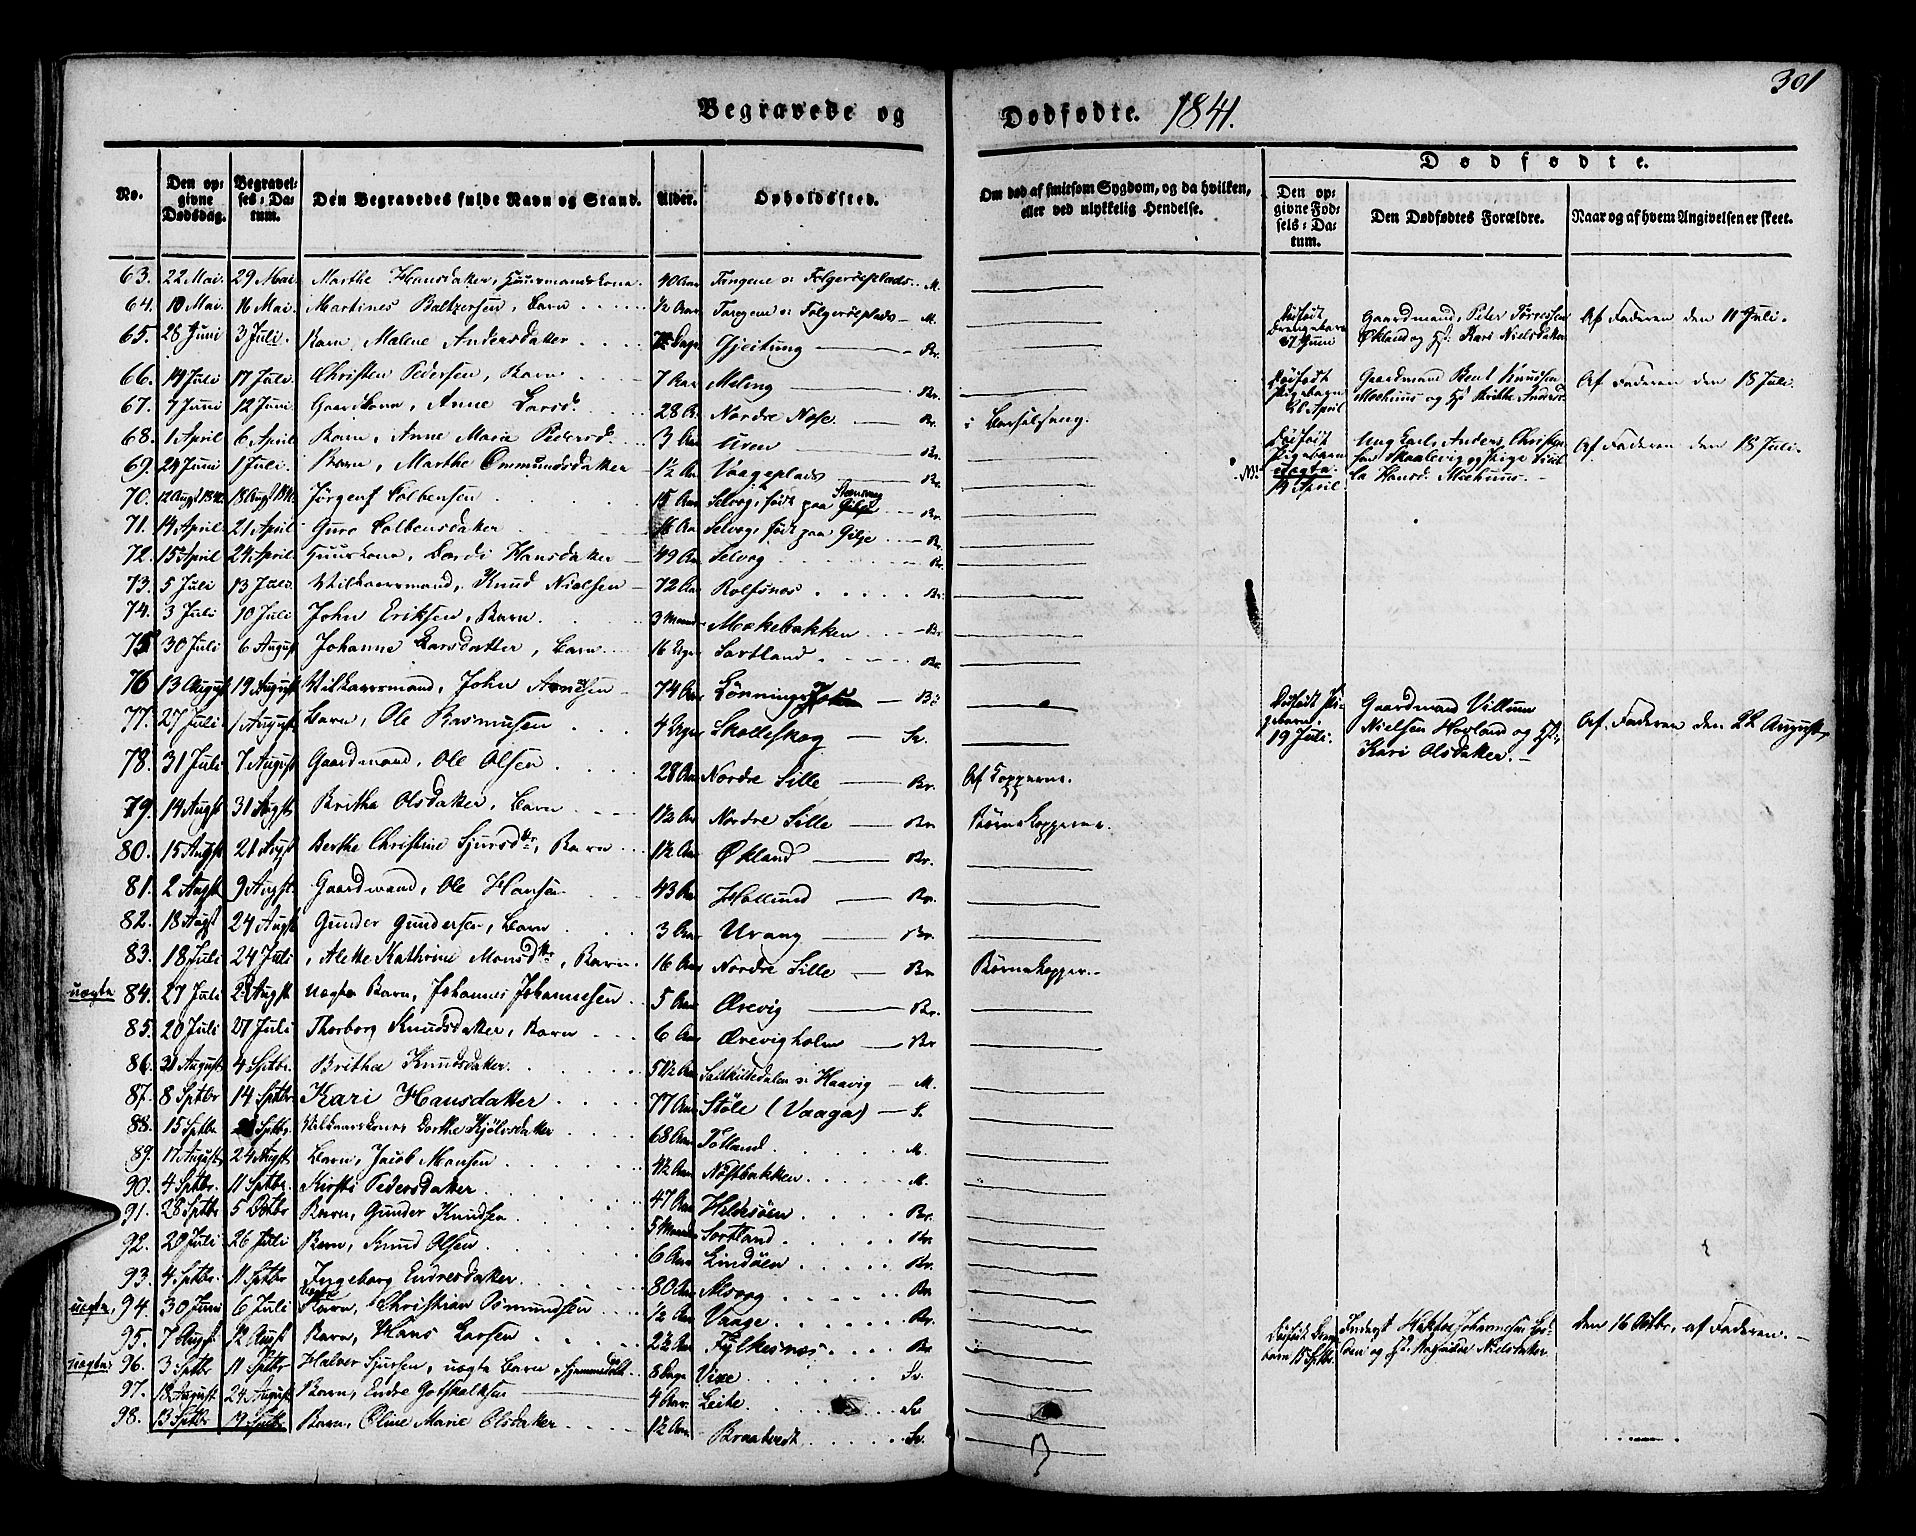 301
Begravede og Dødfødte. 1841.
No. | Den opgivne Dødsdag. | Begravelses-Datum. | Den Begravedes fulde Navn og Stand. | Alder. | Opholdssted. | Om død af smitsom Sygdom, og da hvilken, eller ved ulykkelig Hendelse.
Dødfødte.
Den opgivne Fødsels-Datum. | Den Dødfødtes Forældre. | Naar og af hvem Angivelsen er skeet.
63. 22 Mai. 29 Mai. Marthe Hansdatter, Huusmandskona. 40 Aar Tangene Folgerøeplads. M.
64. 10 Mai. 16 Mai. Martines Baltzersen, Barn ½ Aar Folgerøeplads M.
65. 28 Juni 3 Juli. Barn, Malene Andersdatter Dage Gjeitung Br.
66. 14 Juli 17 Juli. Christen Pedersen, Barn 7 Aar Meling Br.
67. 7 Juni 12 Juni. Gaardkona, Anne Larsd. 28 A. Nordre Nose. Br. i Barselseng.
68. 1 April 6 April Barn, Anne Maria Pedersd. 3 Aar Uren Br.
69. 24 Juni 1 Juli. Barn, Marthe Ommundsdatter 1½ Aar Vaageplads Br.
70. 12 Augst 1840. 18 Augst 1840. Jørgen Tolbensen 15 Aar Selvog, født paa Br.
71. 14 April 21 April Guro Tolbensdatter Aar Selvog, født paa Gilje Br.
72. 15 April 24 April Huuskona, Bordi Hansdatter 49 Aar Selvog Br.
73. 5 Juli 13 Juli Vilkaarsmand, Knud Nielsen 72 Aar Rolfsnos Br.
74. 3 Juli 10 Juli John Eriksen, Barn 3 Maand. Mækebakken Br
75 30 Juli 6 August Johanna Larsdatter, Barn 16 Uger Sortland Br
76 13 August 19 August Vilkaarsmand, John 74 Aar Lønning Br
77. 27 Juli 1 August Barn, Ole Rasmussen 4 Uger Skolleskog Sv.
78. 31 Juli 7 August Gaardmand, Ole Olsen 28 Aar Nordre Lille Br. Af Kopperne.
79. 14 Augst 31 Augst Britha Olsdatter, Barn 1½ Aar Nordre Lille Br Børnekopperne.
80. 15 Augst 21 Augst Berthe Christine Sjursdtr, Barn 1½ Aar Økland Br.
81. 2 Augst 9 Augst. Gaardmand, Ole Hansen 43 Aar Hollund Br.
82. 18 Augst 24 Augst Gunder Gundersen, Barn 3 Aar Urang Br.
83. 18 Juli 24 Juli Alette Kathrine Monsdtr, Barn 16 Aar Nordre Lille Br Børnekopper.
uægte 84. 27 Juli Augst uægte Barn, Johannes Johannesen 5 Aar Ørevig Br.
85. 20 Juli 27 Juli Thorborg Knudsdatter, Barn 6 Aar Ørevigholm Br
86. 31 August 4 Sptbr. Britha Knudsdatter. 5½ Aar Haavig M.
87. 8 Sptbr 14 Sptbr. Kari Hansdatter 77 Aar Støle (Vaaga) S.
88. 15 Sptbr Sptbr. Dorthe Kjølvsdatter 68 Aar Tolland M.
89. 17 August 24 Augst Barn, Jacob Monsen 1½ Aar Nøstbakken M.
90. 4 Sptbr. 11 Sptbr. Kirsti Pedersdatter 47 Aar Heldesøen Br.
91. 28 Sptbr 5 Octbr Barn, Gunder Knudsen 5 Maand. Sortland. Br
92. 20 Juli 26 Juli Barn, Knud Olsen 6 Aar Lindøen Br.
93. 4 Sptbr. 11 Sptbr Ingeborg Endresdatter 80 Aar Br
uægte, 94. 30 Juni 6 Juli uægte Barn, Christian Osmundsen ½ Aar Vaage Br.
95. 7 Augst 12 Augst Barn, Hans Larsen 2½ Aar Fylkesnos Br
uægte 96. 3 Sptbr 11 Sptbr Halvor Sjursen, uægte Barn, Hjemmedøbt 8 Dage Vixe Sv.
97. 18 August 24 August Barn, Endre Gotskalksen 4 Aar. Leite Sv.
98. 13 Sptbr 19 Sptbr. Barn, Oline Marie Olsdatter 1½ Aar Braatvedt Sv.
Dødfødt Drengebarn 27 Juni Gaardmand, Peter Torressen Økland og H. Kari Nielsdatter Af Faderen den 11 Juli.
Dødfødt Pigebarn 26 April Gaardmand Bent Knudsen Moehuus og H. Britthe Andersd. Af Faderen den 18 Juli.
NB. Dødfødt Pigebarn uægte. 14 April Ung Karl, Anders Christensen Skaalevig og Pige Hansd. Moehuus. Af Faderen den 18 Juli.
Dødfødt Pigebarn 19 Juli. Gaardmand Villum Nielsen Hovland og H. Kari Olsdatter. Af Faderen den 22 August
Dødfødt barn 15 Sptbr. Johannesen og H. Nielsdatter Den 16 Octbr, af Faderen.